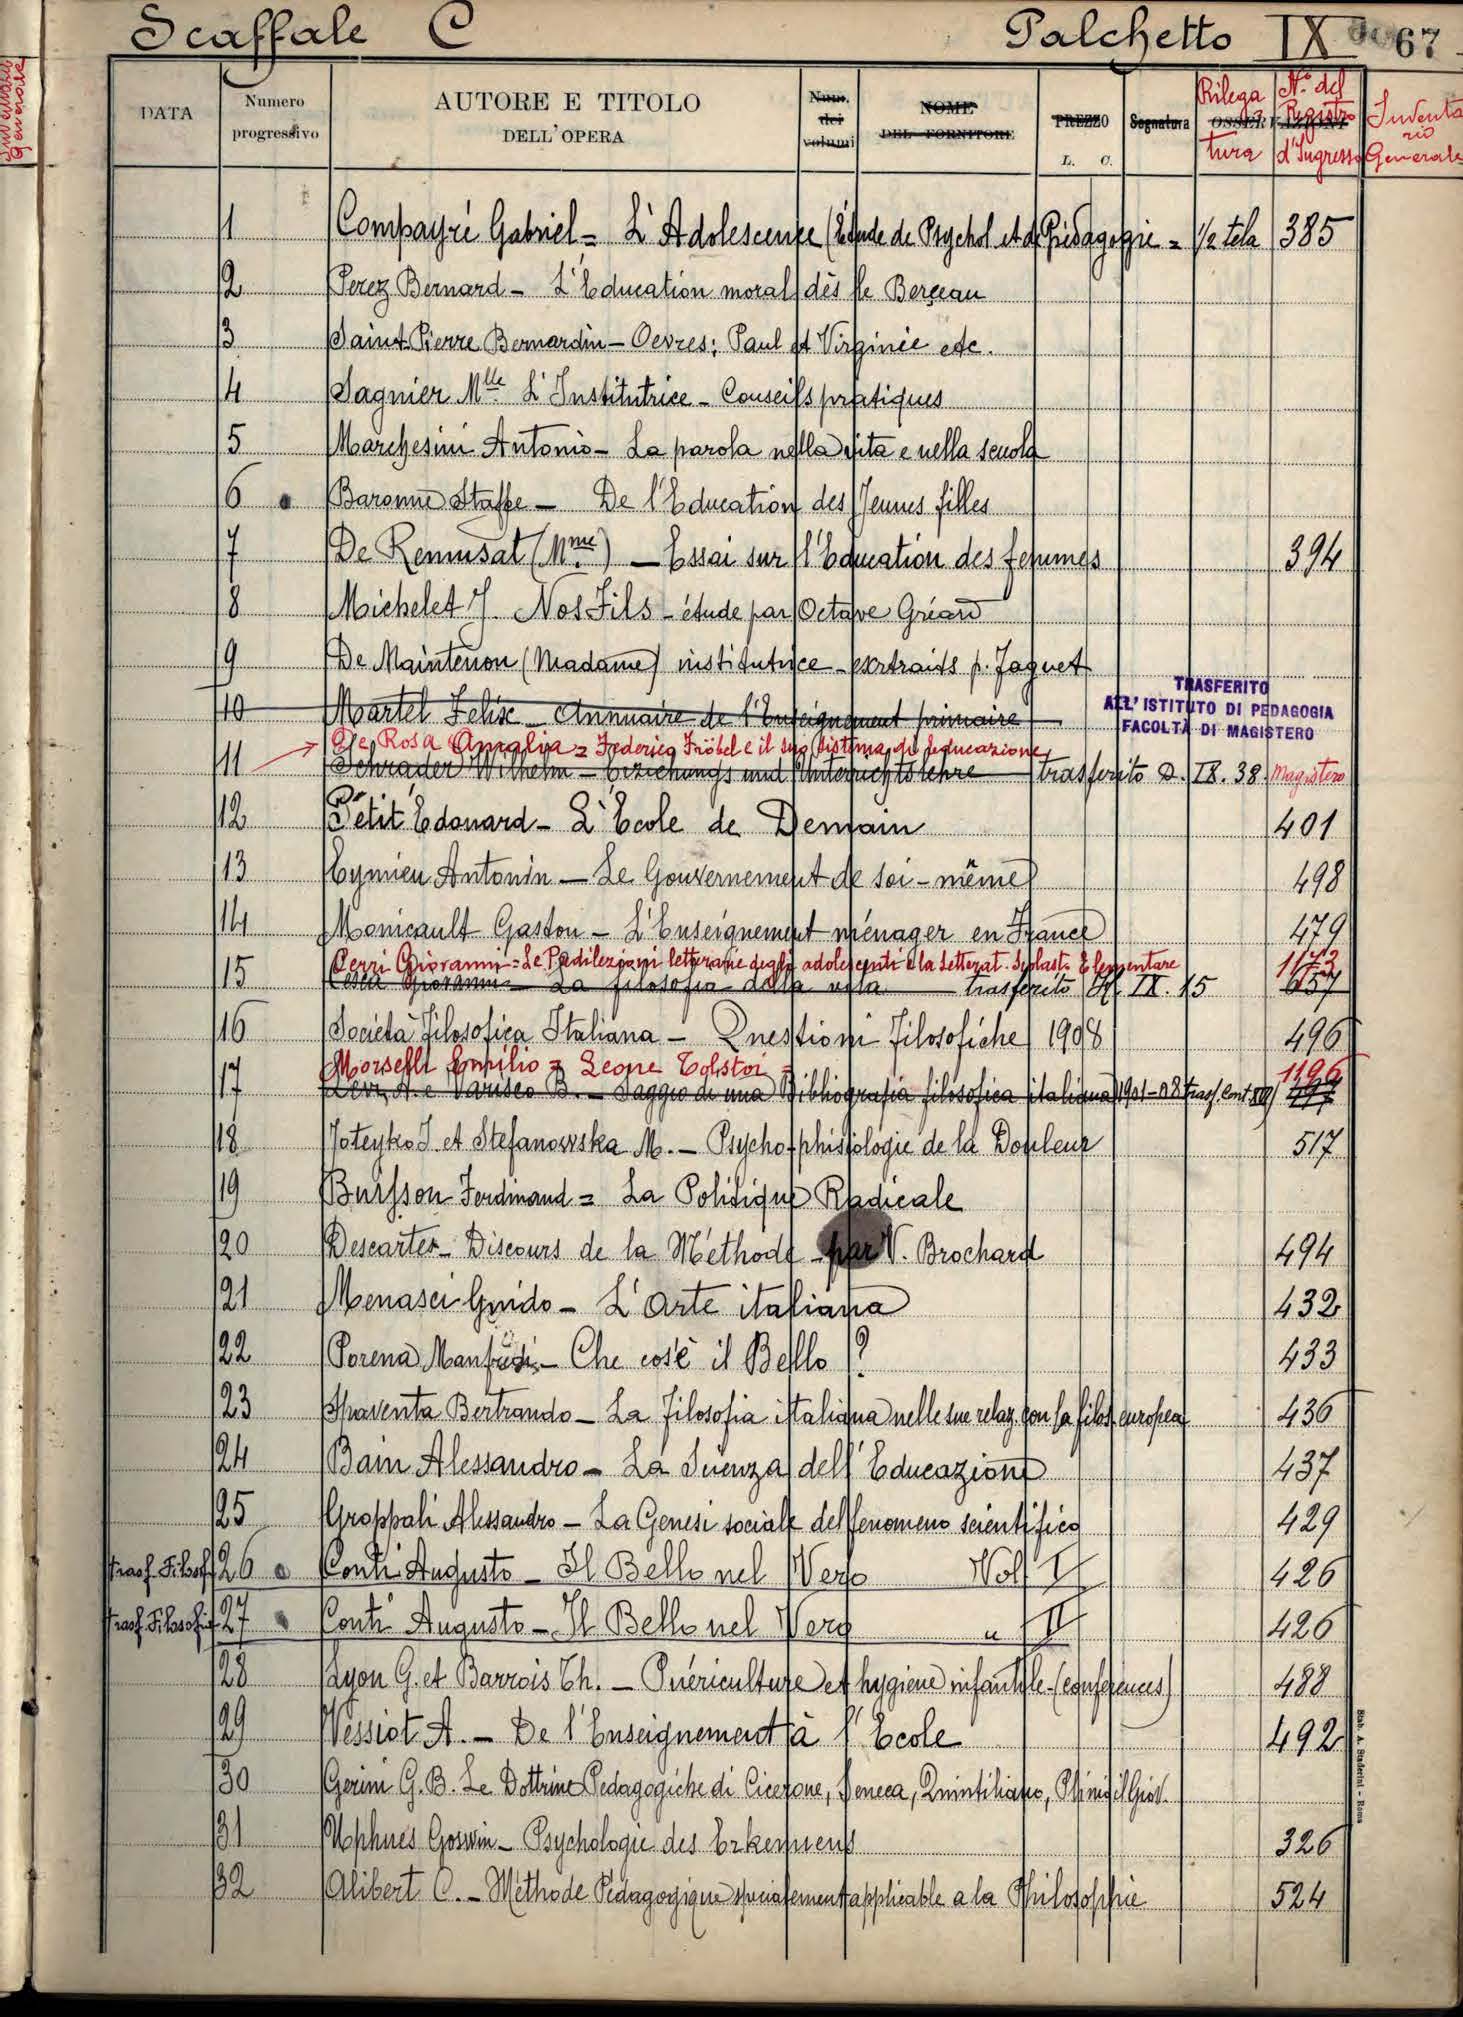 Scaffale C Palchetto IX 67
Inventario Generale
DATA Numero progressivo AUTORE E TITOLO DELL'OPERA Num. dei volumi NOME DEL FORNITORE PREZZO L. C. Segnatura OSSERVAZIONI Rilegatura N.º del Registro d'Ingresso Inventario Generale
1 Compayré Gabriel = L'Adolescence (Étude de Psychol. et de Pédagogie = 1/2 tela 385
2 Perez Bernard - L'Education moral dès le Berceau
3 Saint Pierre Bernardin - Oevres: Paul et Virginie etc.
4 Sagnier Mlle L'Institutrice - Conseils pratiques
5 Marchesini Antonio - La parola nella vita e nella scuola
6 Baronne Staffe - De l'Education des Jeunes filles
7 De Remusat (Mme) - Essai sur l'Education des femmes 394
8 Michelet J. Nos Fils - étude par Octave Gréard
9 De Maintenon (Madame) institutrice - extraits p. Faguet
10 Martel Felix - Annuaire de l'Enseignement primaire
TRASFERITO
ALL'ISTITUTO DI PEDAGOGIA
FACOLTÀ DI MAGISTERO
De Rosa Amalia = Federico Fröbel e il suo sistema di educazione
11 Schrader Wilhelm - Erziehungs und Unterrichtslehre trasferito D. IX. 38. Magistero
12 Petit Edouard - L'Ecole de Demain 401
13 Eymieu Antonin - Le Gouvernement de soi-même 498
14 Monicault Gaston - L'Enseignement ménager en France 479
Cerri Giovanni = Le Predilezioni letterarie degli adolescenti e la Letterat. Scolast. Elementare 1173
15 Cesca Giovanni - La filosofia della vita trasferito IX. 15 657
16 Società Filosofica Italiana - Questioni Filosofiche 1908 496
Morselli Emilio = Leone Tolstoi = 1196
17 Levi A. e Varisco B. - Saggio di una Bibliografia filosofica italiana 1901-08 trasf. Cont. XIII
18 Joteyko J. et Stefanowska M. - Psycho-phisiologie de la Douleur 517
19 Buisson Ferdinand = La Politique Radicale
20 Descartes - Discours de la Méthode - par V. Brochard 494
21 Menasci Guido - L'Arte italiana 432
22 Porena Manfredi - Che cos'è il Bello? 433
23 Spaventa Bertrando - La Filosofia italiana nelle sue relaz. con la filos. europea 436
24 Bain Alessandro - La Scienza dell'Educazione 437
25 Groppali Alessandro - La Genesi sociale del fenomeno scientifico 429
trasf. Filosof. 26 Conti Augusto - Il Bello nel Vero Vol. I 426
trasf. Filosofia 27 Conti Augusto - Il Bello nel Vero " II 426
28 Lyon G. et Barrois Th. - Puériculture et hygiene infantile - (conferences) 488
29 Vessiot A. - De l'Enseignement à l'Ecole 492
30 Gerini G. B. Le Dottrine Pedagogiche di Cicerone, Seneca, Quintiliano, Plinio il Giov.
31 Uphues Goswin - Psychologie des Erkennens 326
32 Alibert C. - Méthode Pédagogique specialement applicable a la Philosophie 524
Stab. A. Staderini - Roma